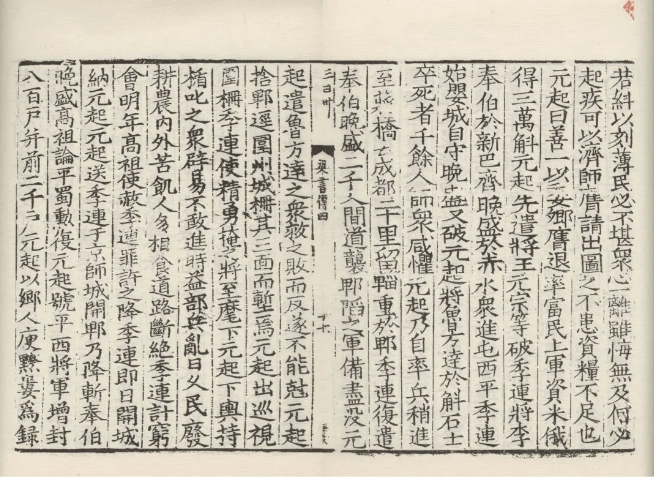 若糾以刻薄民必不堪衆心一離雖悔無及何必
起疾可以濟師膺請出圖之不患資糧不足也
元起曰善一以委卿膺退率富民上軍資米俄
得三萬斛元起先遣將王元宗等破季連將李
奉伯於新巴齊晚盛於赤水衆進屯西平季連
始嬰城自守晚盛又破元起將魯方達於斛石士
卒死者千餘人師衆咸懼元起乃自率兵稍進
至蔣橋去成都二十里留輜重於郫季連復遣
奉伯晚盛二千人間道襲郫陷之軍備盡没元
梁書傳四
起遣魯方達之衆救之敗而反遂不能尅元起
捨郫逕圍州城柵其三面而塹焉元起出巡視
圍柵季連使精勇掩之將至麾下元起下輿持
楯叱之衆辟易不敢進時益部兵亂日久民廢
耕農内外苦飢人多相食道路斷絶季連計窮
會明年高祖使赦季連罪許之降季連即日開城
納元起元起送季連于京師城開郫乃降斬奉伯
晚盛高祖論平蜀勳復元起號平西將軍增封
八百戸并前二千戸元起以鄉人庾黔婁爲錄